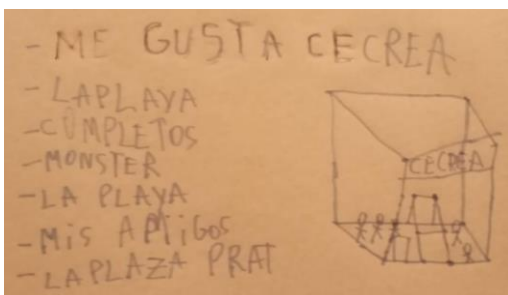 - ME GUSTA CECREA
- LAPLAYA
- COMPLETOS
- MONSTER
- LA PLAYA
- MiS AMiGOS
- LA PLAZA PRAT
CECREA